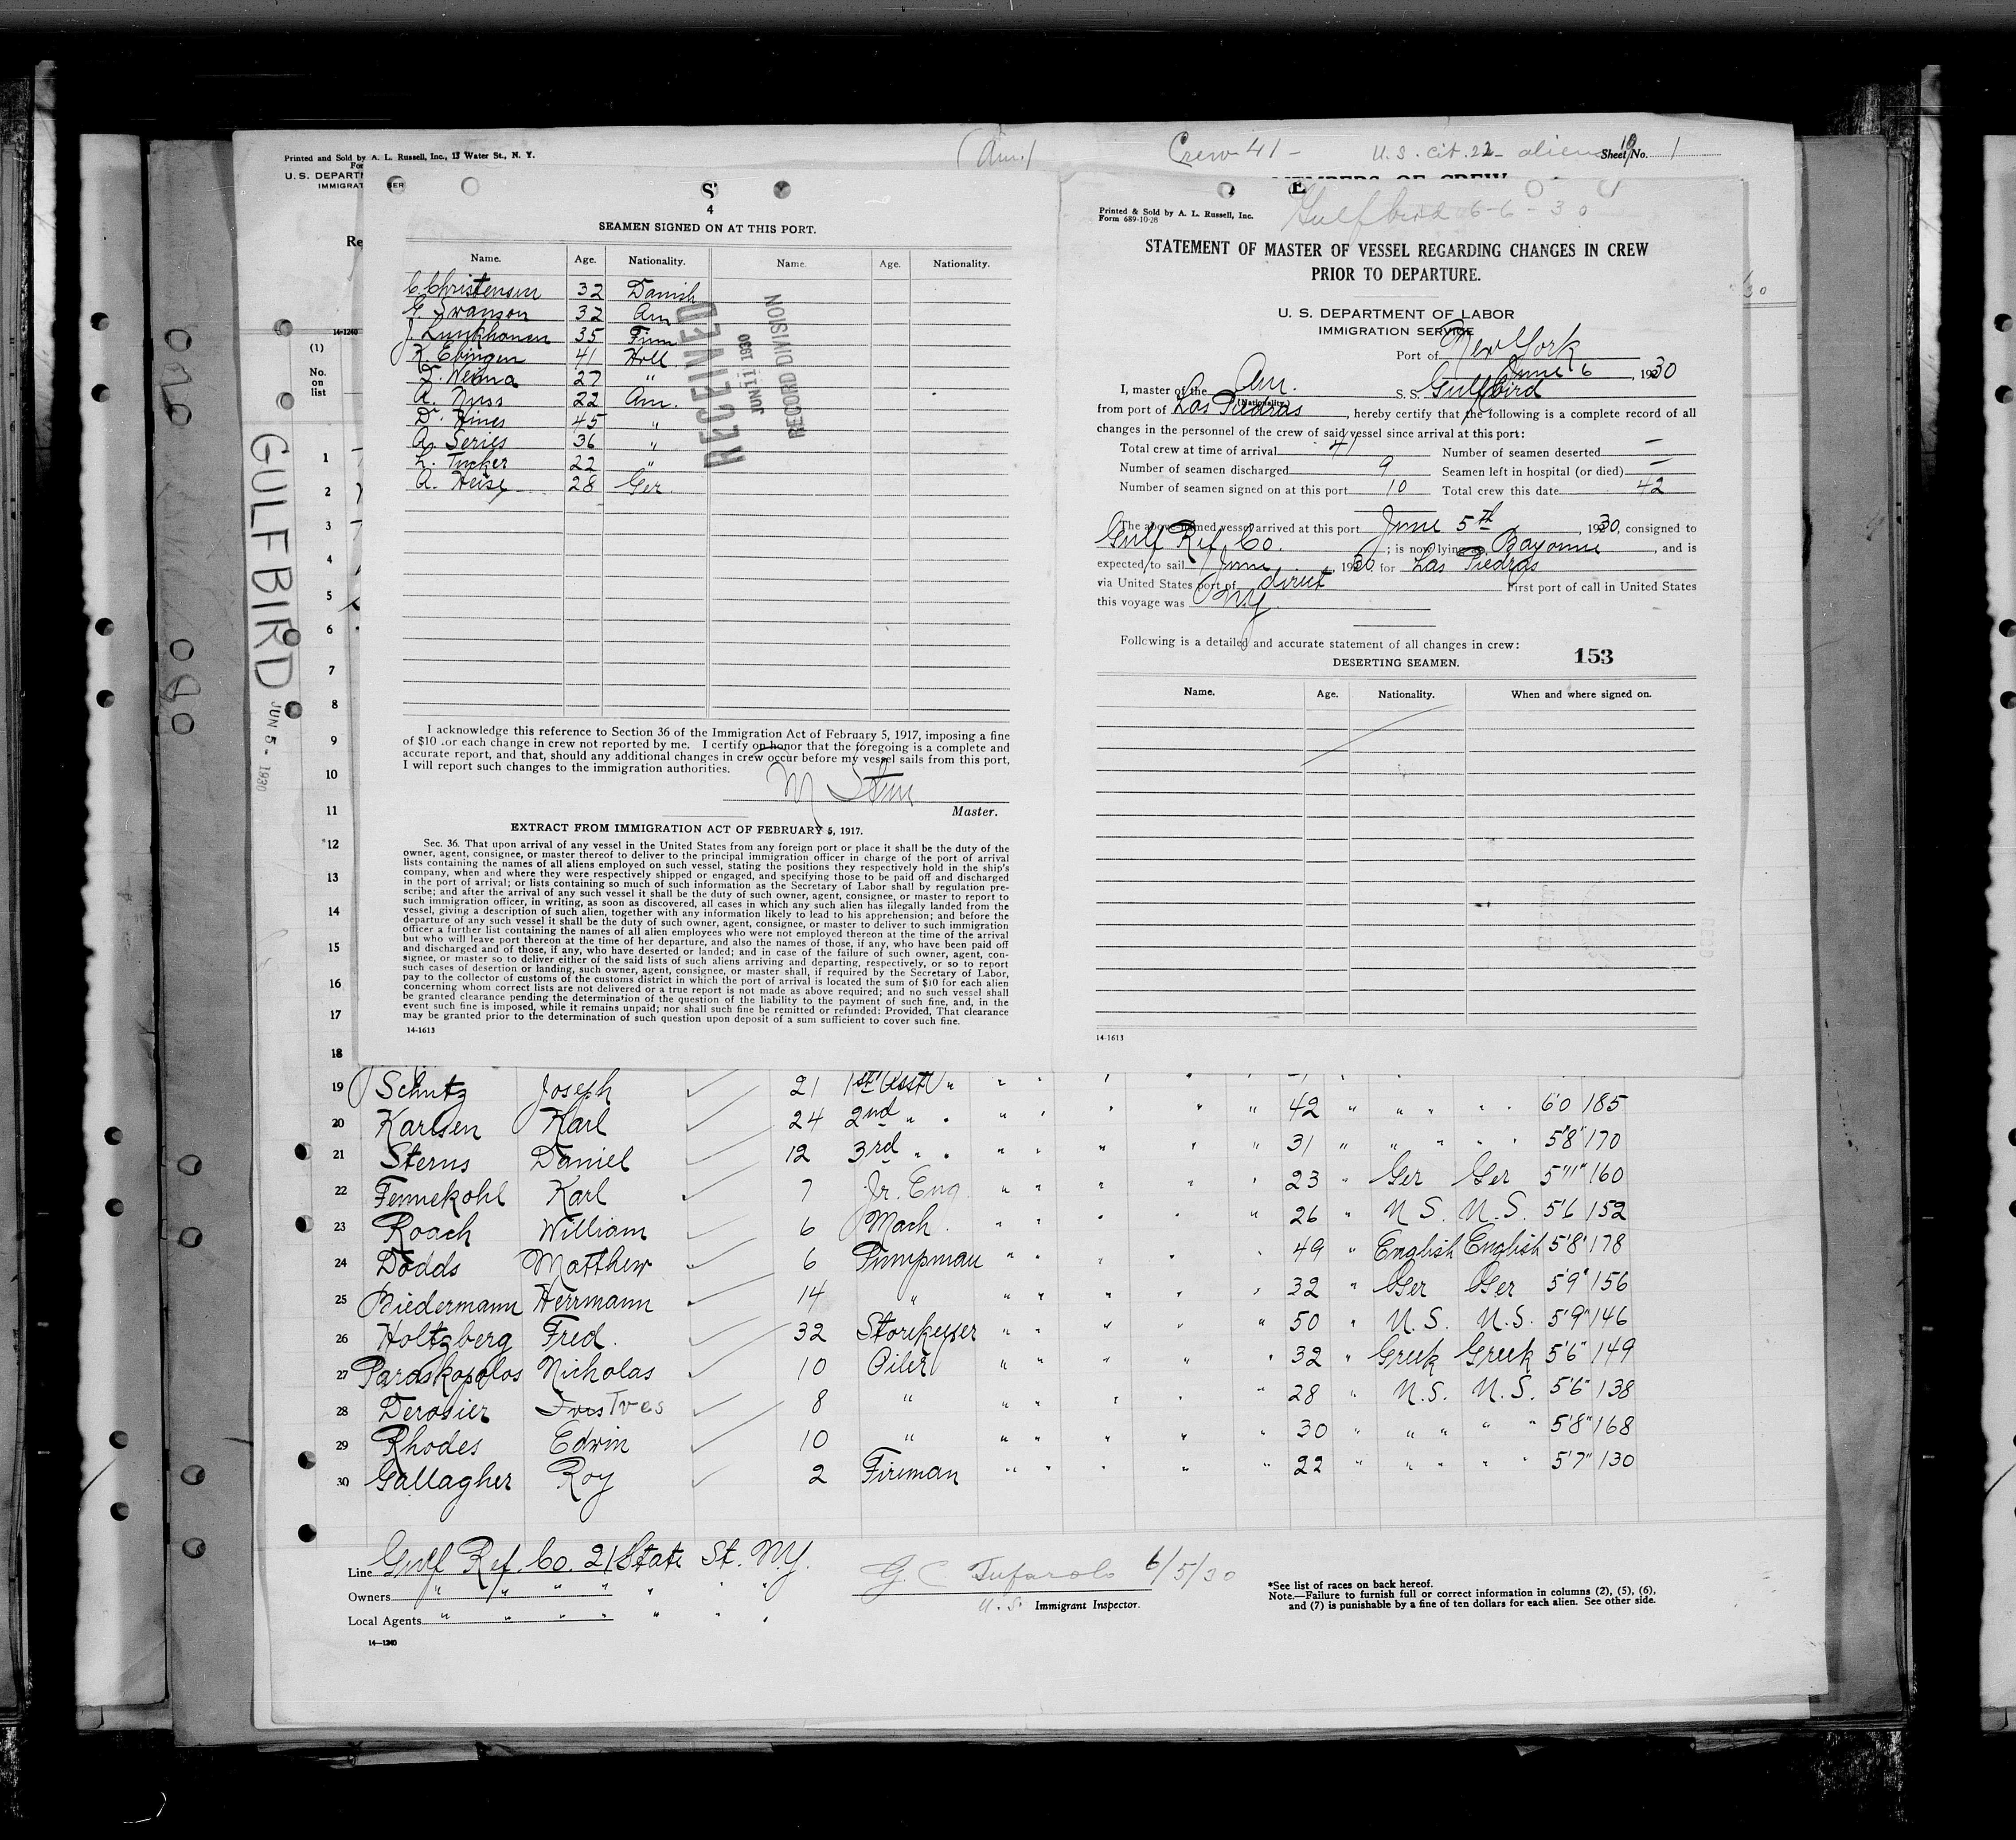 (Am.)
Crew 41 - U.S. cit. 22 - aliens 19
Sheet No. 1
Printed and Sold by A. L. Russell, Inc., 13 Water St., N. Y.
U. S. DEPARTM
IMMIGRAT
MEMBERS OF CREW
14-1240
(1)
No.
on
list
GULFBIRD
JUN 5 - 1930
4
SEAMEN SIGNED ON AT THIS PORT.
Name. Age. Nationality. Name. Age. Nationality.
C. Christensen 32 Danish
G. Swanson 32 Am
J. Lunkhonen 35 Finn
K. Ebingen 41 Holl
Z. Weima 27 "
A. Nuss 22 Am.
D. Hines 45 "
A. Series 36 "
L. Tucker 22 "
A. Heise 28 Ger.
RECEIVED
JUN 11 1930
RECORD DIVISION
I acknowledge this reference to Section 36 of the Immigration Act of February 5, 1917, imposing a fine
of $10 for each change in crew not reported by me. I certify on honor that the foregoing is a complete and
accurate report, and that, should any additional changes in crew occur before my vessel sails from this port,
I will report such changes to the immigration authorities.
Master.
EXTRACT FROM IMMIGRATION ACT OF FEBRUARY 5, 1917.
Sec. 36. That upon arrival of any vessel in the United States from any foreign port or place it shall be the duty of the
owner, agent, consignee, or master thereof to deliver to the principal immigration officer in charge of the port of arrival
lists containing the names of all aliens employed on such vessel, stating the positions they respectively hold in the ship's
company, when and where they were respectively shipped or engaged, and specifying those to be paid off and discharged
in the port of arrival; or lists containing so much of such information as the Secretary of Labor shall by regulation pre-
scribe; and after the arrival of any such vessel it shall be the duty of such owner, agent, consignee, or master to report to
such immigration officer, in writing, as soon as discovered, all cases in which any such alien has illegally landed from the
vessel, giving a description of such alien, together with any information likely to lead to his apprehension; and before the
departure of any such vessel it shall be the duty of such owner, agent, consignee, or master to deliver to such immigration
officer a further list containing the names of all alien employees who were not employed thereon at the time of the arrival
but who will leave port thereon at the time of her departure, and also the names of those, if any, who have been paid off
and discharged and of those, if any, who have deserted or landed; and in case of the failure of such owner, agent, con-
signee, or master so to deliver either of the said lists of such aliens arriving and departing, respectively, or so to report
such cases of desertion or landing, such owner, agent, consignee, or master shall, if required by the Secretary of Labor,
pay to the collector of customs of the customs district in which the port of arrival is located the sum of $10 for each alien
concerning whom correct lists are not delivered or a true report is not made as above required; and no such vessel shall
be granted clearance pending the determination of the question of the liability to the payment of such fine, and, in the
event such fine is imposed, while it remains unpaid; nor shall such fine be remitted or refunded: Provided, That clearance
may be granted prior to the determination of such question upon deposit of a sum sufficient to cover such fine.
14-1613
Printed & Sold by A. L. Russell, Inc.
Form 689-10-28
Gulfbird 6-6-30
STATEMENT OF MASTER OF VESSEL REGARDING CHANGES IN CREW
PRIOR TO DEPARTURE.
U. S. DEPARTMENT OF LABOR
IMMIGRATION SERVICE
Port of New York
June 6, 1930
I, master of the Am. S. S. Gulfbird
(Nationality.)
from port of Las Piedras, hereby certify that the following is a complete record of all
changes in the personnel of the crew of said vessel since arrival at this port:
Total crew at time of arrival 41 Number of seamen deserted —
Number of seamen discharged 9 Seamen left in hospital (or died) —
Number of seamen signed on at this port 10 Total crew this date 42
The above-named vessel arrived at this port June 5th, 1930, consigned to
Gulf Ref. Co.; is now lying at Bayonne, and is
expected to sail June, 1930 for Las Piedras
via United States port of direct First port of call in United States
this voyage was NY.
Following is a detailed and accurate statement of all changes in crew:
153
DESERTING SEAMEN.
Name. Age. Nationality. When and where signed on.
14-1613
1
2
3
4
5
6
7
8
9
10
11
12
13
14
15
16
17
18
19 Schutz Joseph 21 1st Asst "
20 Karlsen Karl 24 2nd " " 42 " " " " " 6'0 185
21 Sterns Daniel 12 3rd " " 31 " " " " " 5'8" 170
22 Fennekohl Karl 7 Jr. Eng. 23 " Ger Ger 5'11" 160
23 Roach William 6 Mach. 26 " U.S. U.S. 5'6 152
24 Dodds Matthew 6 Pumpman 49 " English English 5'8" 178
25 Biedermann Herrmann 14 " 32 " Ger Ger 5'9" 156
26 Holtzberg Fred. 32 Storekeeper 50 " U.S. U.S. 5'9" 146
27 Paraskopolos Nicholas 10 Oiler 32 " Greek Greek 5'6" 149
28 Derosier Ives 8 " 28 " U.S. U.S. 5'6" 138
29 Rhodes Edwin 10 " 30 " " " " " 5'8" 168
30 Gallagher Roy 2 Fireman 22 " " " " " 5'7" 130
Line Gulf Ref. Co. 21 State St. NY.
Owners " " " " " " "
Local Agents " " " " " " "
14-1240
G. C. Tufarolo 6/5/30
U.S. Immigrant Inspector.
*See list of races on back hereof.
Note.—Failure to furnish full or correct information in columns (2), (5), (6),
and (7) is punishable by a fine of ten dollars for each alien. See other side.